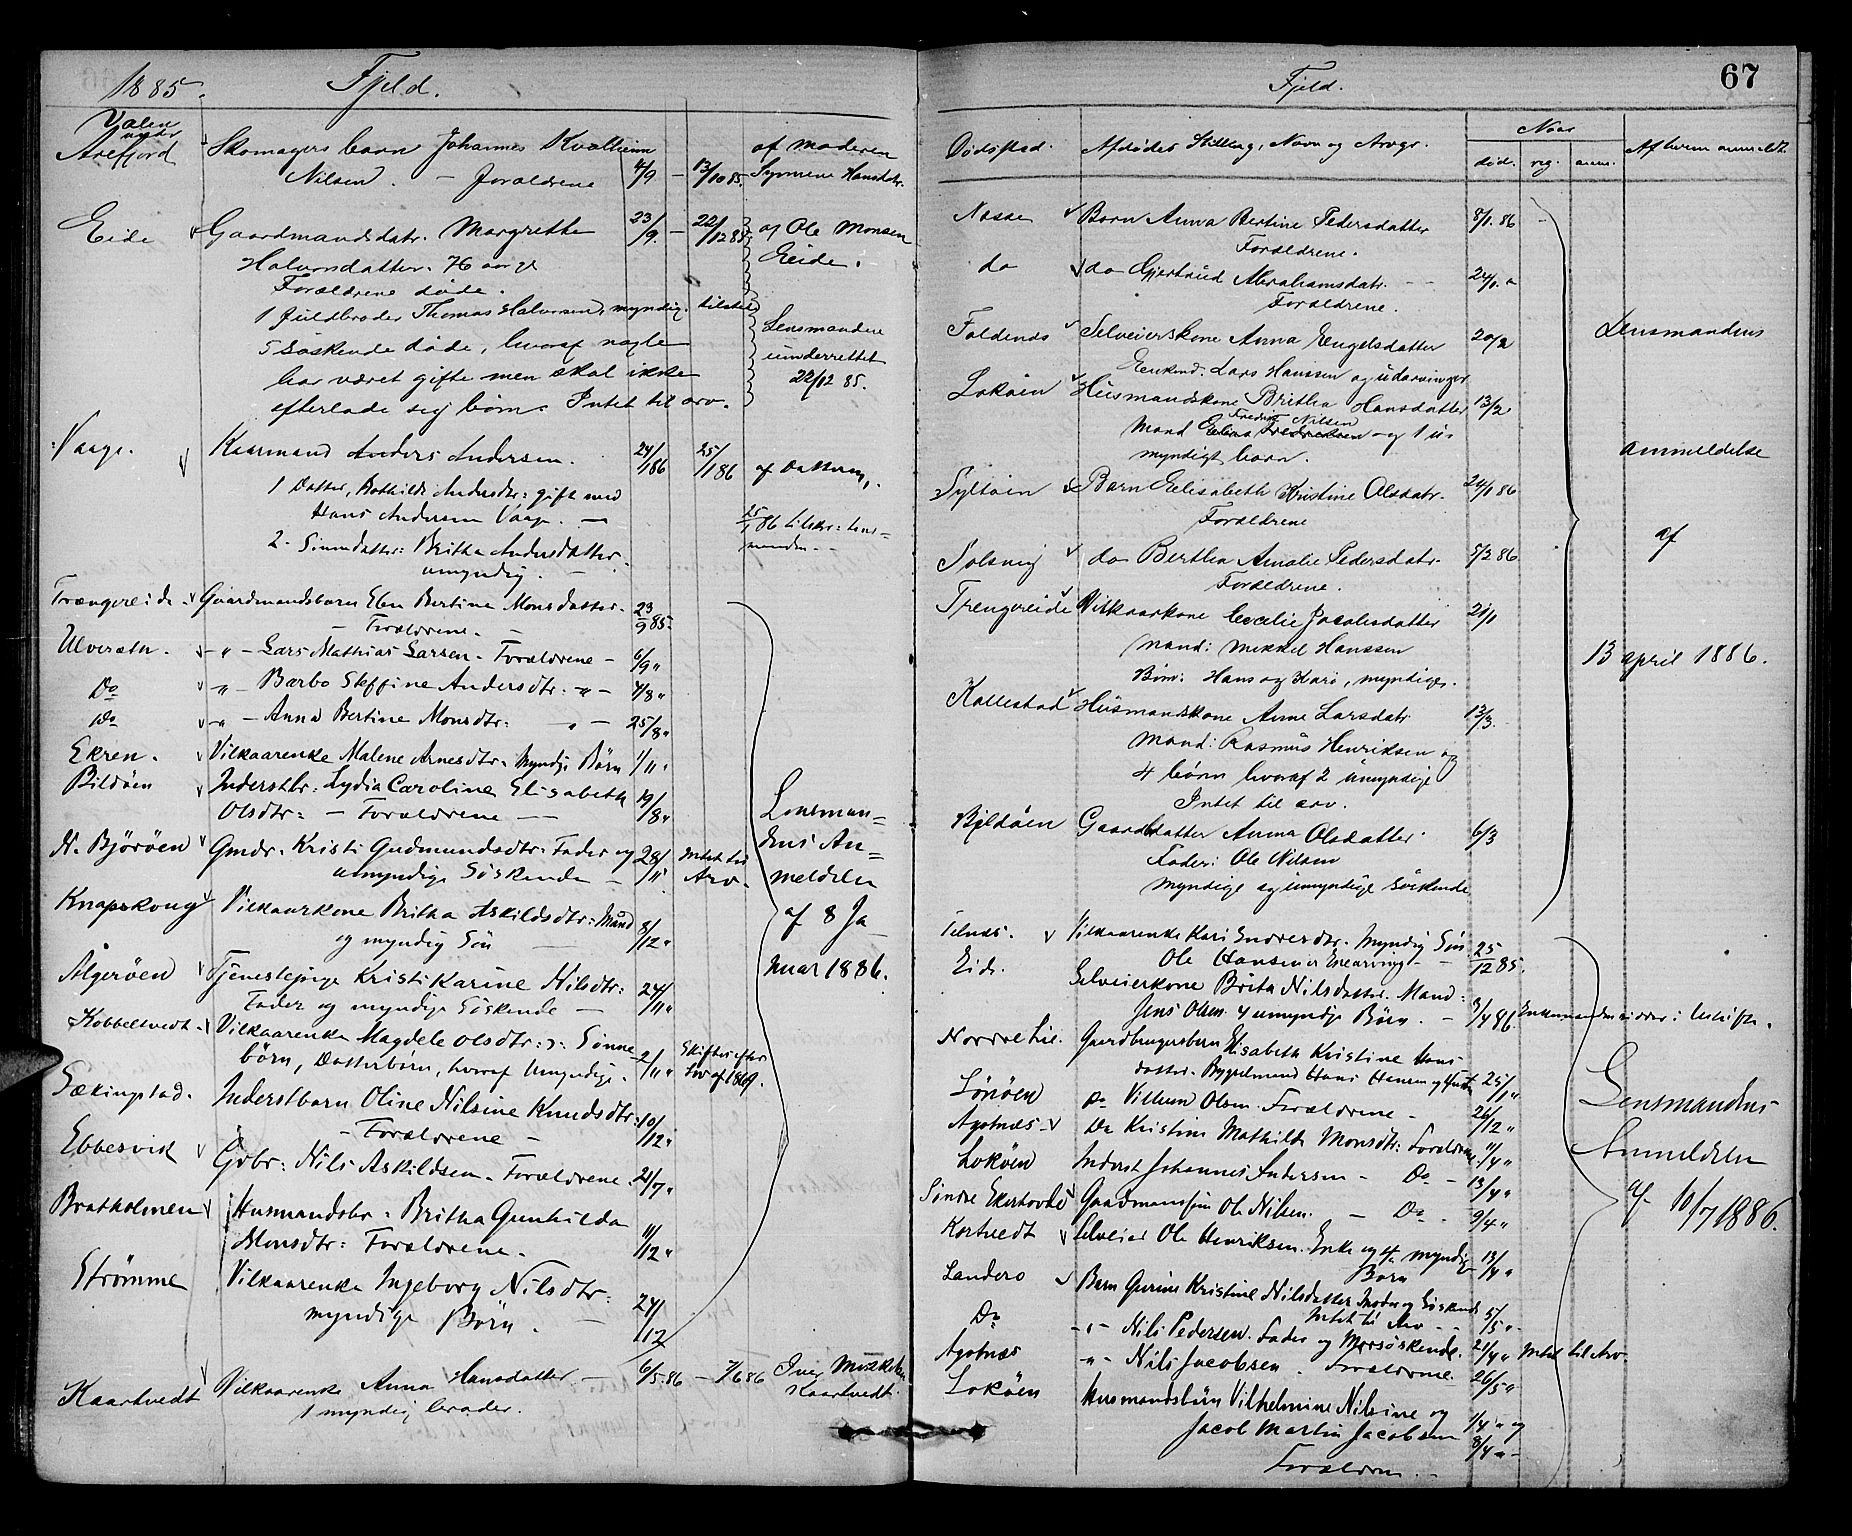 1885. Fjeld.
Valen
under
Arefjord Skomagers barn Johannes Kvalheim af moderen
Nilsen. - Forældrene 4/9 - 13/10 85. Hansdtr.
Eide Gaardmandsdatr. Margrethe 23/9. - 22/12 85. af Ole Monsen
Halvorsdatter. 76 aar gl Eide.
Forældrene døde.
1 fuldbroder Thomas Halvorsen, myndig, tilstede
5 Søskende døde, hvoraf nogle Lensmanden
har været gifte men skal ikke underrettet
efterlade sig børn. Intet til arv. 22/12 85.
Vaage. Kaarmand Anders Andersen. 24/1 86 25/1 86 af Datteren.
1 Datter, Bothilde Andersdtr: gift med
Hans Andersen Vaage. - 25/1 86 tilskr: Lens=
2. Sønnedatter: Britha Andersdatter manden.
umyndig. -
Trængereide. Gaardmandsbarn Elen Bertine Monsdatter. 23/9 85.
- Forældrene. -
Ulveseth. - " - Lars Mathias Larsen. Forældrene - 6/9 "
Do " - Barbo Steffine Andersdtr: " - 4/8 "
Do - " - Anna Bertine Monsdtr: " - 25/8 "
Ekren. Vilkaarenke Malene Arnesdtr. Myndge Børn 1/11 "
Bildöen Inderstbr: Lydia Caroline Elisabeth 19/8 "
Olsdtr: - Forældrene - Lensman=
N. Björöen Gmdr. Kristi Gudmundsdtr. Fader og 28/11 " Intet til dens An=
umyndige Söskende - Arv. meldelse
Knapskoug Vilkaarkone Britha Askildsdtr: Mand 8/12 " af 8 Ja
og myndig Søn - nuar 1886.
Algeröen Tjenestepige Kristi Karine Nilsdtr: 24/11 "
Fader og myndige Söskende -
Kobbeltvedt. Vilkaarenke Magdele Olsdtr: Sønne= 2/11 " Skiftes efter
börn, Datterbörn, hvoraf Umyndige. Lov af 1869.
Sækingstad. Inderstbarn Oline Nilsine Knudsdtr: 10/12 "
- Forældrene -
Ebbesvik Gdbr: Nils Askildsen. Forældrene. 21/7 "
Bratholmen Husmandsbr. Britha Gunhilda 11/12 "
Monsdtr: Forældrene.
Strömme Vilkaarenke Ingeborg Nilsdtr: 24/12
myndige Börn. -
Kaartvedt Vilkaarenke Anna Hansdatter - 6/5 86 - 7/6 86
1 myndig broder. Kaartvedt.
Fjeld. 67
Naar
Dödsstad. Afdødes Stilling, Navn og Arvgr. død. reg. anm. Af hvem anmeldt.
Nesse Barn Anna Bertine Pedersdatter 8/1. 86
Forældrene.
do do Gjertrud Abrahamsdatr. - - 24/1. "
Forældrene.
Foldenes Selveierskone Anna Engelsdatter 20/2 Lensmandens
Enkemd: Lars Hanssen og udarvinger
Loköen Husmandskone Britha Hansdatter 13/2
Fredrik Nilsen
Mand Elias Fredriksen og 1 u= anmeldelse
myndigt barn.
Syltöen Barn Elisabeth Kristine Olsdatr. 24/1 86
Forældrene af
Solsvig do Bertha Amalie Pedersdatr. 5/2 86
Forældrene.
Trengereide Vilkaarkone Cecilie Jacobsdatter 21/1
Mand: Mikkel Hanssen 13 april 1886.
Børn: Hans og Kari, myndige.
Kallestad Husmandskone Anne Larsdatr 13/3.
Mand: Rasmus Henriksen og
4 børn hvoraf 2 umyndige
Intet til arv.
Bildöen Gaarddatter Anna Olsdatter. 6/3
Fader: Ole Nilsen
Myndige og umyndige søskende
Telnes. Vilkaarenke Kari Endresdtr. Myndig Søn 25/12 85.
Ole Hansen er Enearving -
Eide. Selveierkone Brita Nilsdatter. Mand:
Jens Olsen. 4 umyndge Børn. - 3/4 86. Enkemanden sidder i Uskifte.
Gaardbrugersbarn Elisabeth Kristine Hans=
datter. Hans Hansen og 25/1 "
Lönöen Do Villum Olsen. Forældrene - 26/12 " Lensmandens
Agotnes. Do Kristine Mathilde Monsdtr: Forældrene 11/4 " Anmeldelse
Loköen Inderst Johannes Andersen - Do - 13/4 "
Søndre Ekerhovde Ole Nilsen. - Do. 9/4 " af 10/7 1886.
Kortvedt Selveier Ole Henriksen. Enke og myndige 13/4 "
Børn
Landero Barn Gurine Kristine Nilsdatter Moder og Söskende 5/5 "
Intet til Arv - -
Do - " - Nils Pedersen. Fader og Söskende. 21/4 " Intet til Arv.
Agotnes - " - Nils Jacobsen. Forældrene. 26/5 "
Loköen Husmandsbörn Vilhelmine Nilsine og 1/4 " og
Jacob Martin Jacobsen 8/4 " -
Forældrene. -